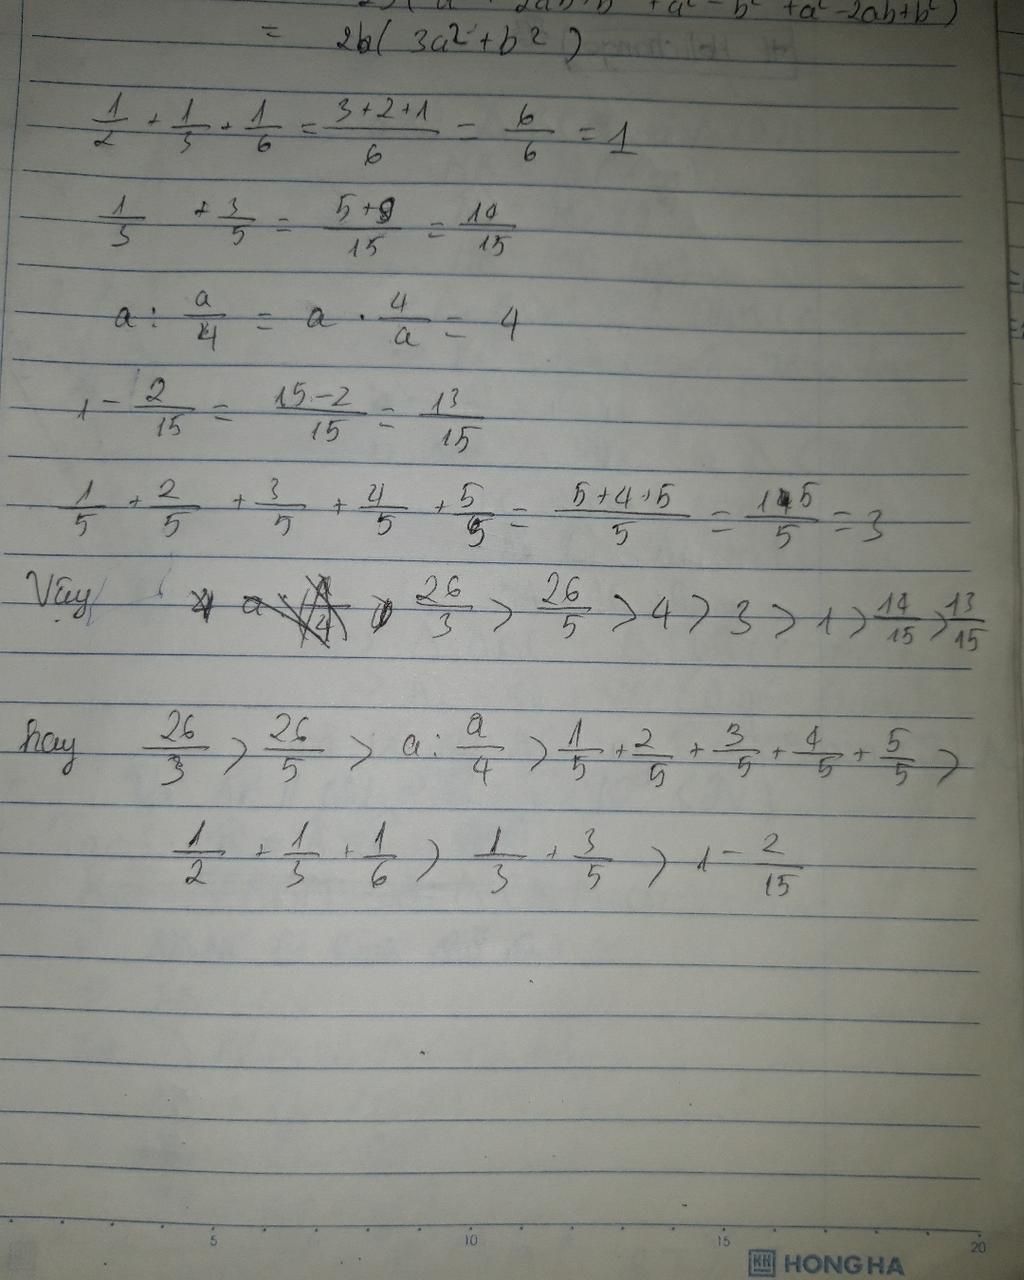 + a² - b² + a² - 2ab + b²)
= 2b(3a² + b²)
1/2 + 1/3 + 1/6 = (3+2+1)/6 = 6/6 = 1
1/3 + 3/5 = (5+9)/15 = 14/15
a : a/4 = a · 4/a = 4
1 - 2/15 = (15-2)/15 = 13/15
1/5 + 2/5 + 3/5 + 4/5 + 5/5 = (5+4+5)/5 = 15/5 = 3
Vậy 26/3 > 26/5 > 4 > 3 > 1 > 14/15 > 13/15
hay 26/3 > 26/5 > a : a/4 > 1/5 + 2/5 + 3/5 + 4/5 + 5/5 >
1/2 + 1/3 + 1/6 > 1/3 + 3/5 > 1 - 2/15
5 10 15 20
KH HONG HA